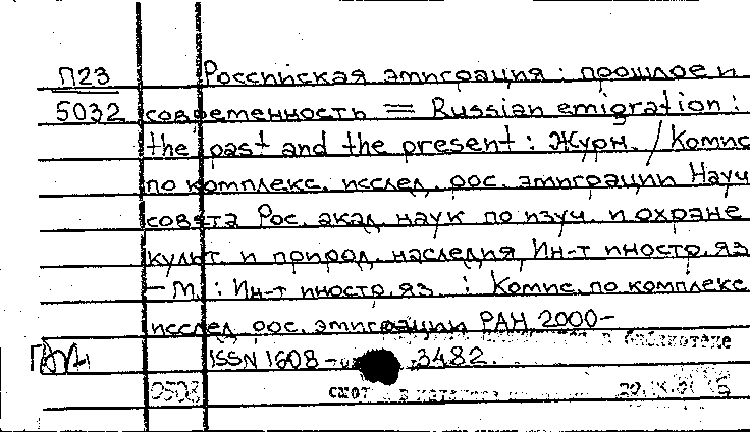 П23 Российская эмиграция : прошлое и
5032 современность = Russian emigration :
the past and the present : Журн. / Комис
по комплекс. исслед. рос. эмиграции Науч
совета Рос. акад. наук по изуч. и охране
культ. и природ. наследия, Ин-т иностр. яз
– М. : Ин-т иностр. яз. : Комис. по комплекс
исслед. рос. эмиграции РАН, 2000–
в библиотеке
ISSN 1608- 3482.
0508